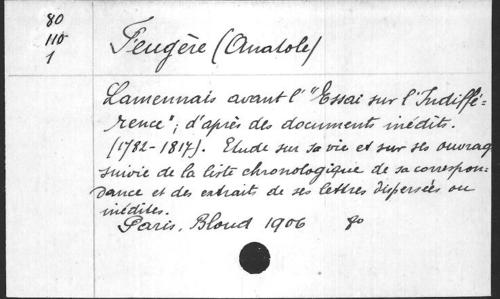 80
110
1
Feugère (Anatole)
Lamennais avant l'"Essai sur l'Indiffé-
rence"; d'après des documents inédits.
(1782-1817). Etude sur sa vie et sur ses ouvrag
suivie de la liste chronologique de sa correspon-
dance et des extraits de ses lettres dispersées ou
inédites.
Paris, Bloud 1906 80